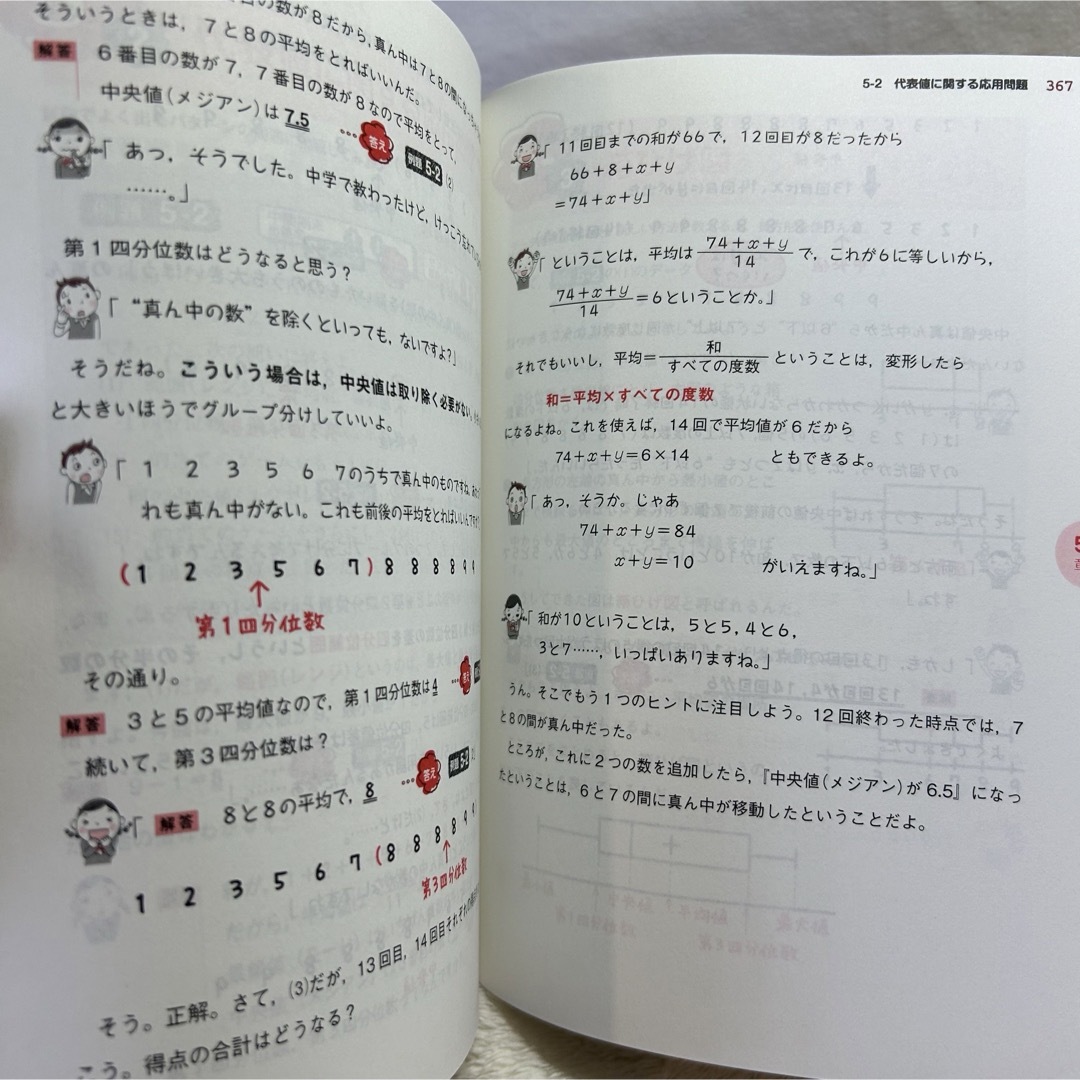 目の数が8だから，真ん中は7と8の間になっ
そういうときは，7と8の平均をとればいいんだ。
解答 6番目の数が7，7番目の数が8なので平均をとって，
中央値（メジアン）は 7.5 … 答え 例題 5-2 (2)
「あっ，そうでした。中学で教わったけど，けっこう
……。」
第1四分位数はどうなると思う？
「“真ん中の数”を除くといっても，ないですよ？」
そうだね。こういう場合は，中央値は取り除く必要がない。
と大きいほうでグループ分けしていいよ。
「1 2 3 5 6 7のうちで真ん中のものですね。
れも真ん中がない。これも前後の平均をとればいいんですか
(1 2 3 5 6 7) 8 8 8 8 9 9
第1四分位数
その通り。
解答 3と5の平均値なので，第1四分位数は4 … 答え
続いて，第3四分位数は？
「 解答 8と8の平均で，8 … 答え 例題 5-2 (2)
1 2 3 5 6 7 (8 8 8 8 9 9
第3四分位数
そう。正解。さて，(3)だが，13回目，14回目それぞれの
こう。得点の合計はどうなる？
5-2 代表値に関する応用問題 367
「11回目までの和が66で，12回目が8だったから
66＋8＋x＋y
＝74＋x＋y」
「ということは，平均は 74＋x＋y/14 で，これが6に等しいから，
74＋x＋y/14 ＝6ということか。」
それでもいいし，平均＝ 和/すべての度数 ということは，変形したら
和＝平均×すべての度数
になるよね。これを使えば，14回で平均値が6だから
74＋x＋y＝6×14 ともできるよ。
「あっ，そうか。じゃあ
74＋x＋y＝84
x＋y＝10 がいえますね。」
「和が10ということは，5と5，4と6，
3と7……，いっぱいありますね。」
うん。そこでもう1つのヒントに注目しよう。12回終わった時点では，7
と8の間が真ん中だった。
ところが，これに2つの数を追加したら，『中央値（メジアン）が6.5』になっ
たということは，6と7の間に真ん中が移動したということだよ。
5
章